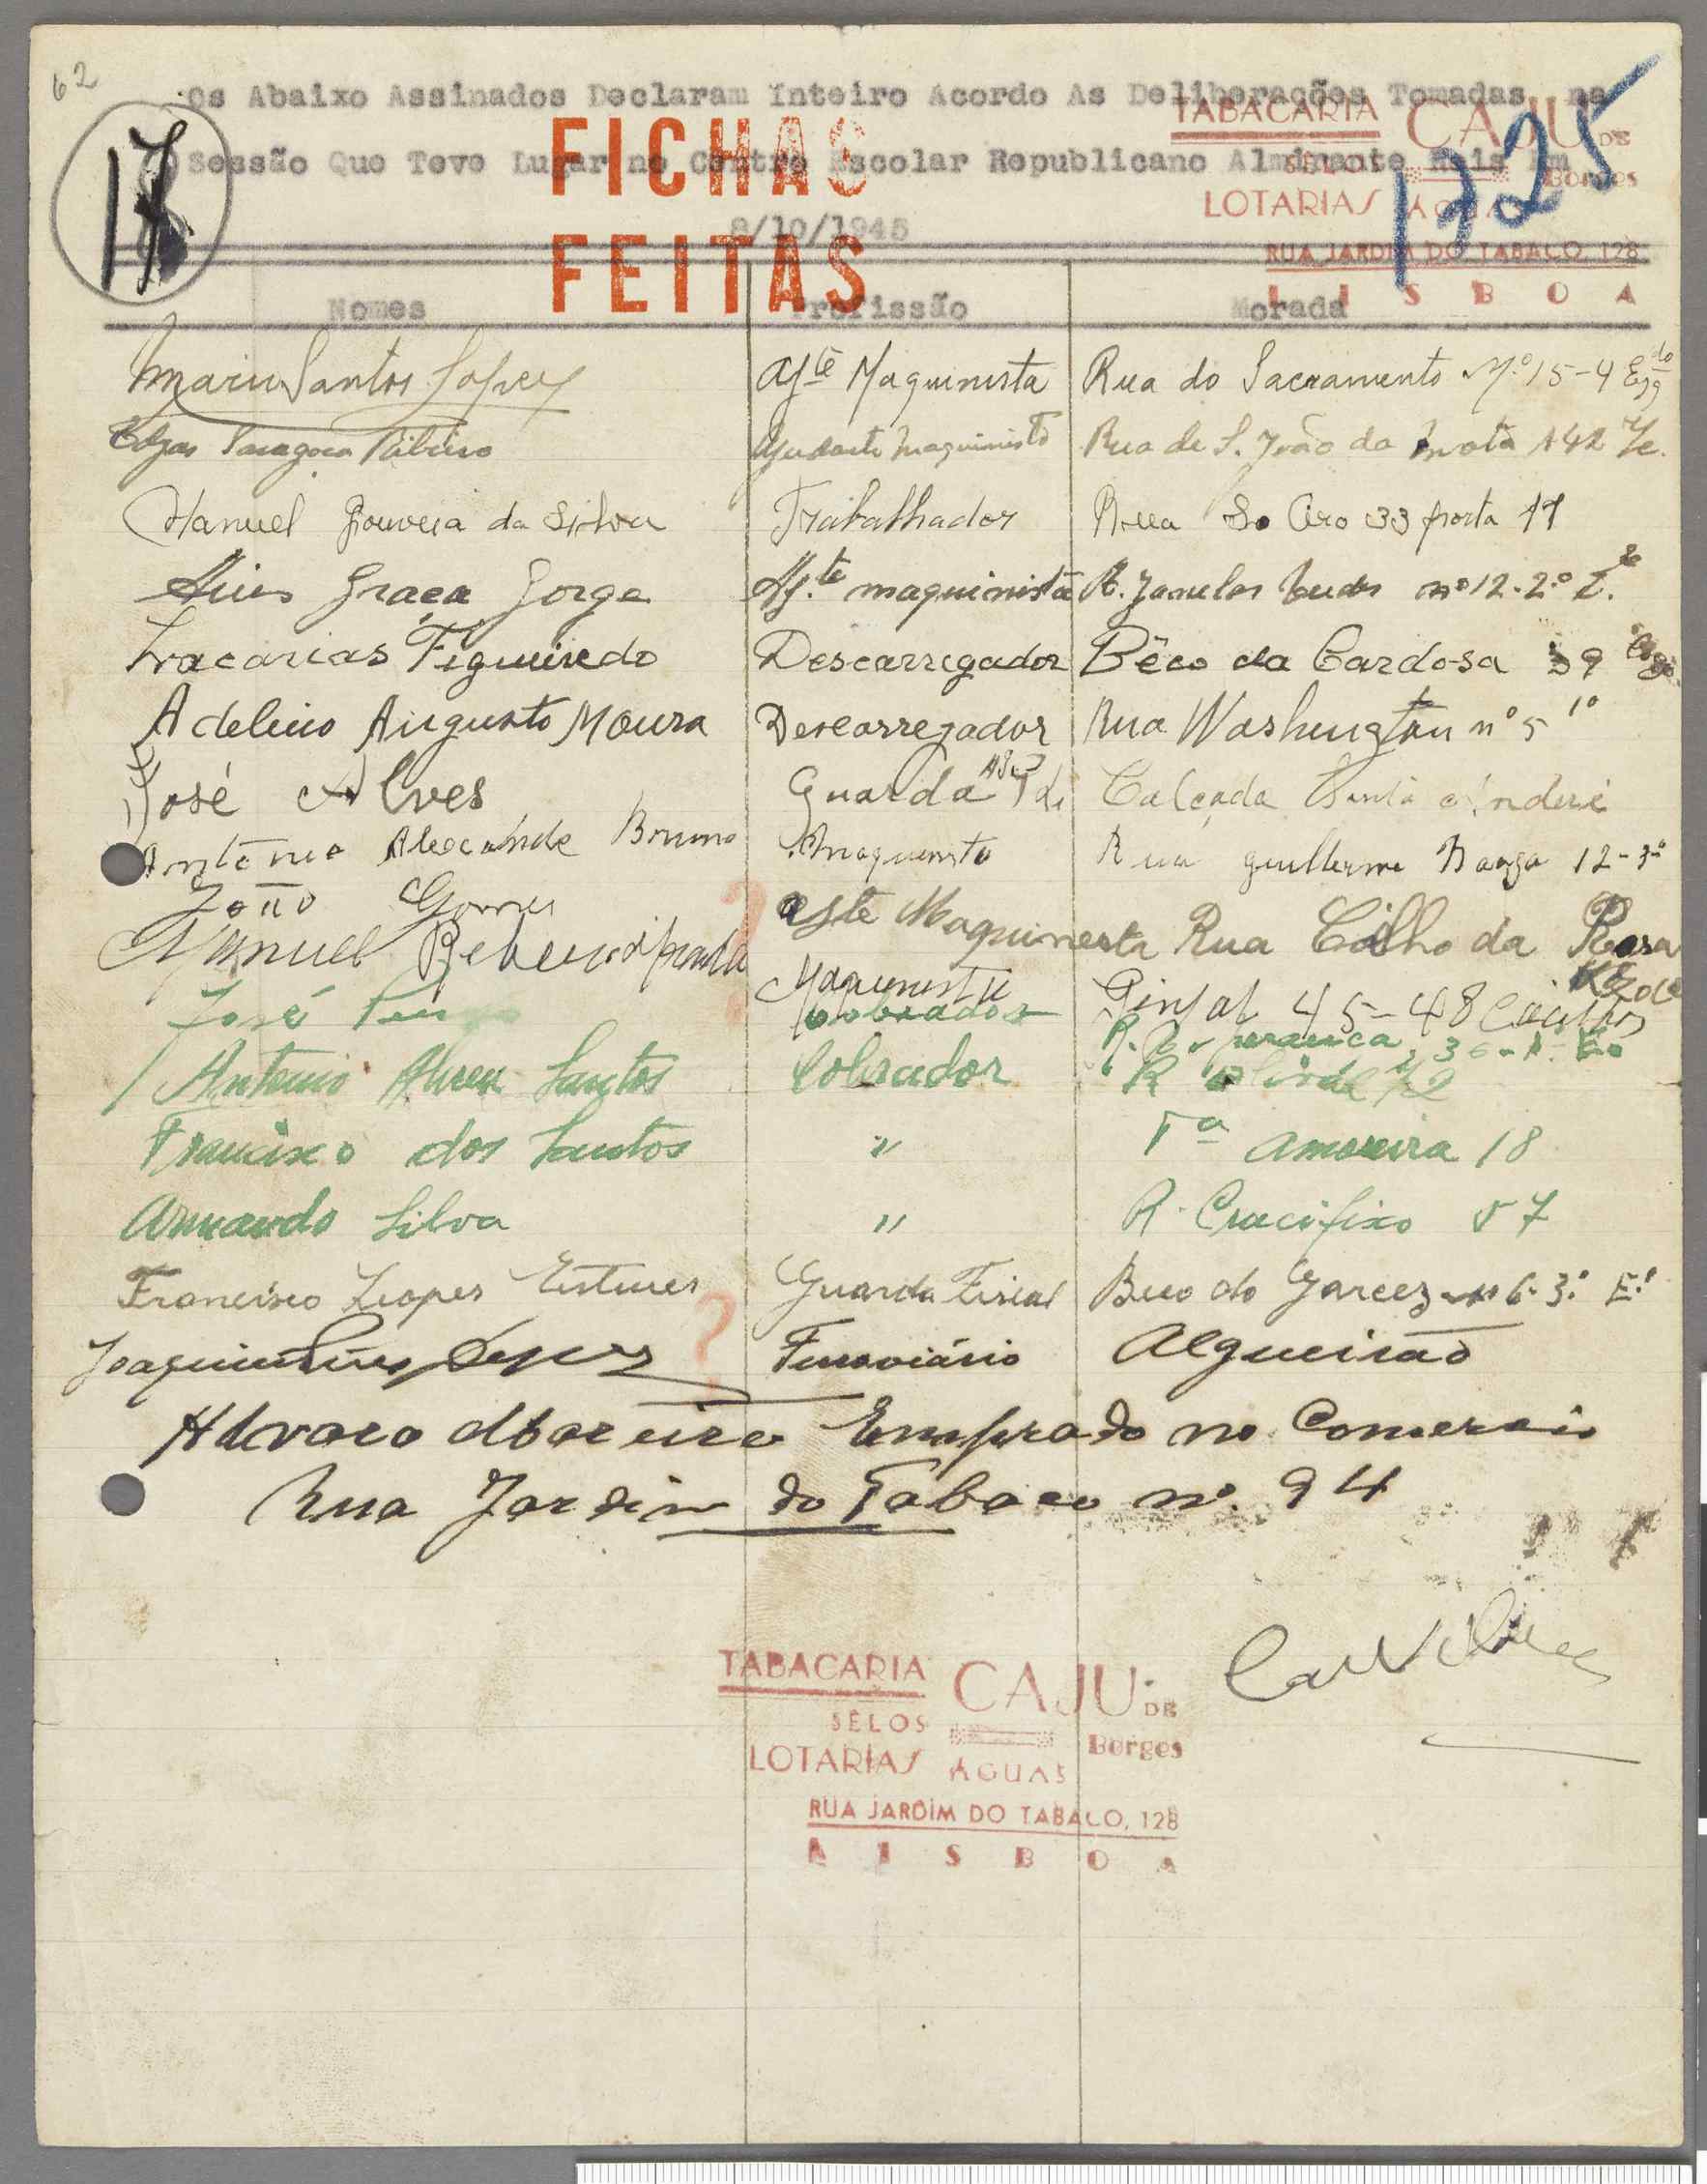 62
Os Abaixo Assinados Declaram Inteiro Acordo As Deliberações Tomadas na
TABACARIA CAJU DE
FICHAS
Sessão Que Teve Lugar no Centro Escolar Republicano Almirante Reis Em
SELOS Borges
17
1725
LOTARIAS AGUAS
8/10/1945
FEITAS
RUA JARDIM DO TABACO, 128
LISBOA
Nomes Profissão Morada
Mario Santos Lopes Ajte Maquinista Rua do Sacramento Nº 15-4 Esqdo
Ribeiro Ajudante Maquinista Rua de S. João da Mata 142
Manuel Gouveia da Silva Trabalhador Rua 33 porta 11
Luis Graça Jorge Aj.te maquinista R. Janelas nº 12-2º
Zracarias Figueiredo Descarregador Bêco da Cardosa 39
Adelino Augusto Moura Descarregador Rua Washington nº 5 1º
José Alves Guarda Calçada Santo André
António Alexandre Bruno Maquinista Rua guilherme Braga 12-3º
João Gomes Ajte Maquinista Rua Coelho da Rosa
Manuel Maquinista Ginjal 45-48 Cacilhas
José Cobrador R. 36
Antonio Abreu Santos Cobrador R 72
Francisco dos Santos " Tª Amoreira 18
Armando Silva " R. Crucifixo 57
Francisco Lopes Esteves Guarda Fiscal Beco do Garcez nº 6-3º E.º
Joaquim ? Ferroviário Algueirão
Alvaro Moreira Empregado no Comercio
Rua Jardim do Tabaco nº. 94
TABACARIA CAJU DE
SELOS Borges
LOTARIAS AGUAS
RUA JARDIM DO TABACO, 128
LISBOA